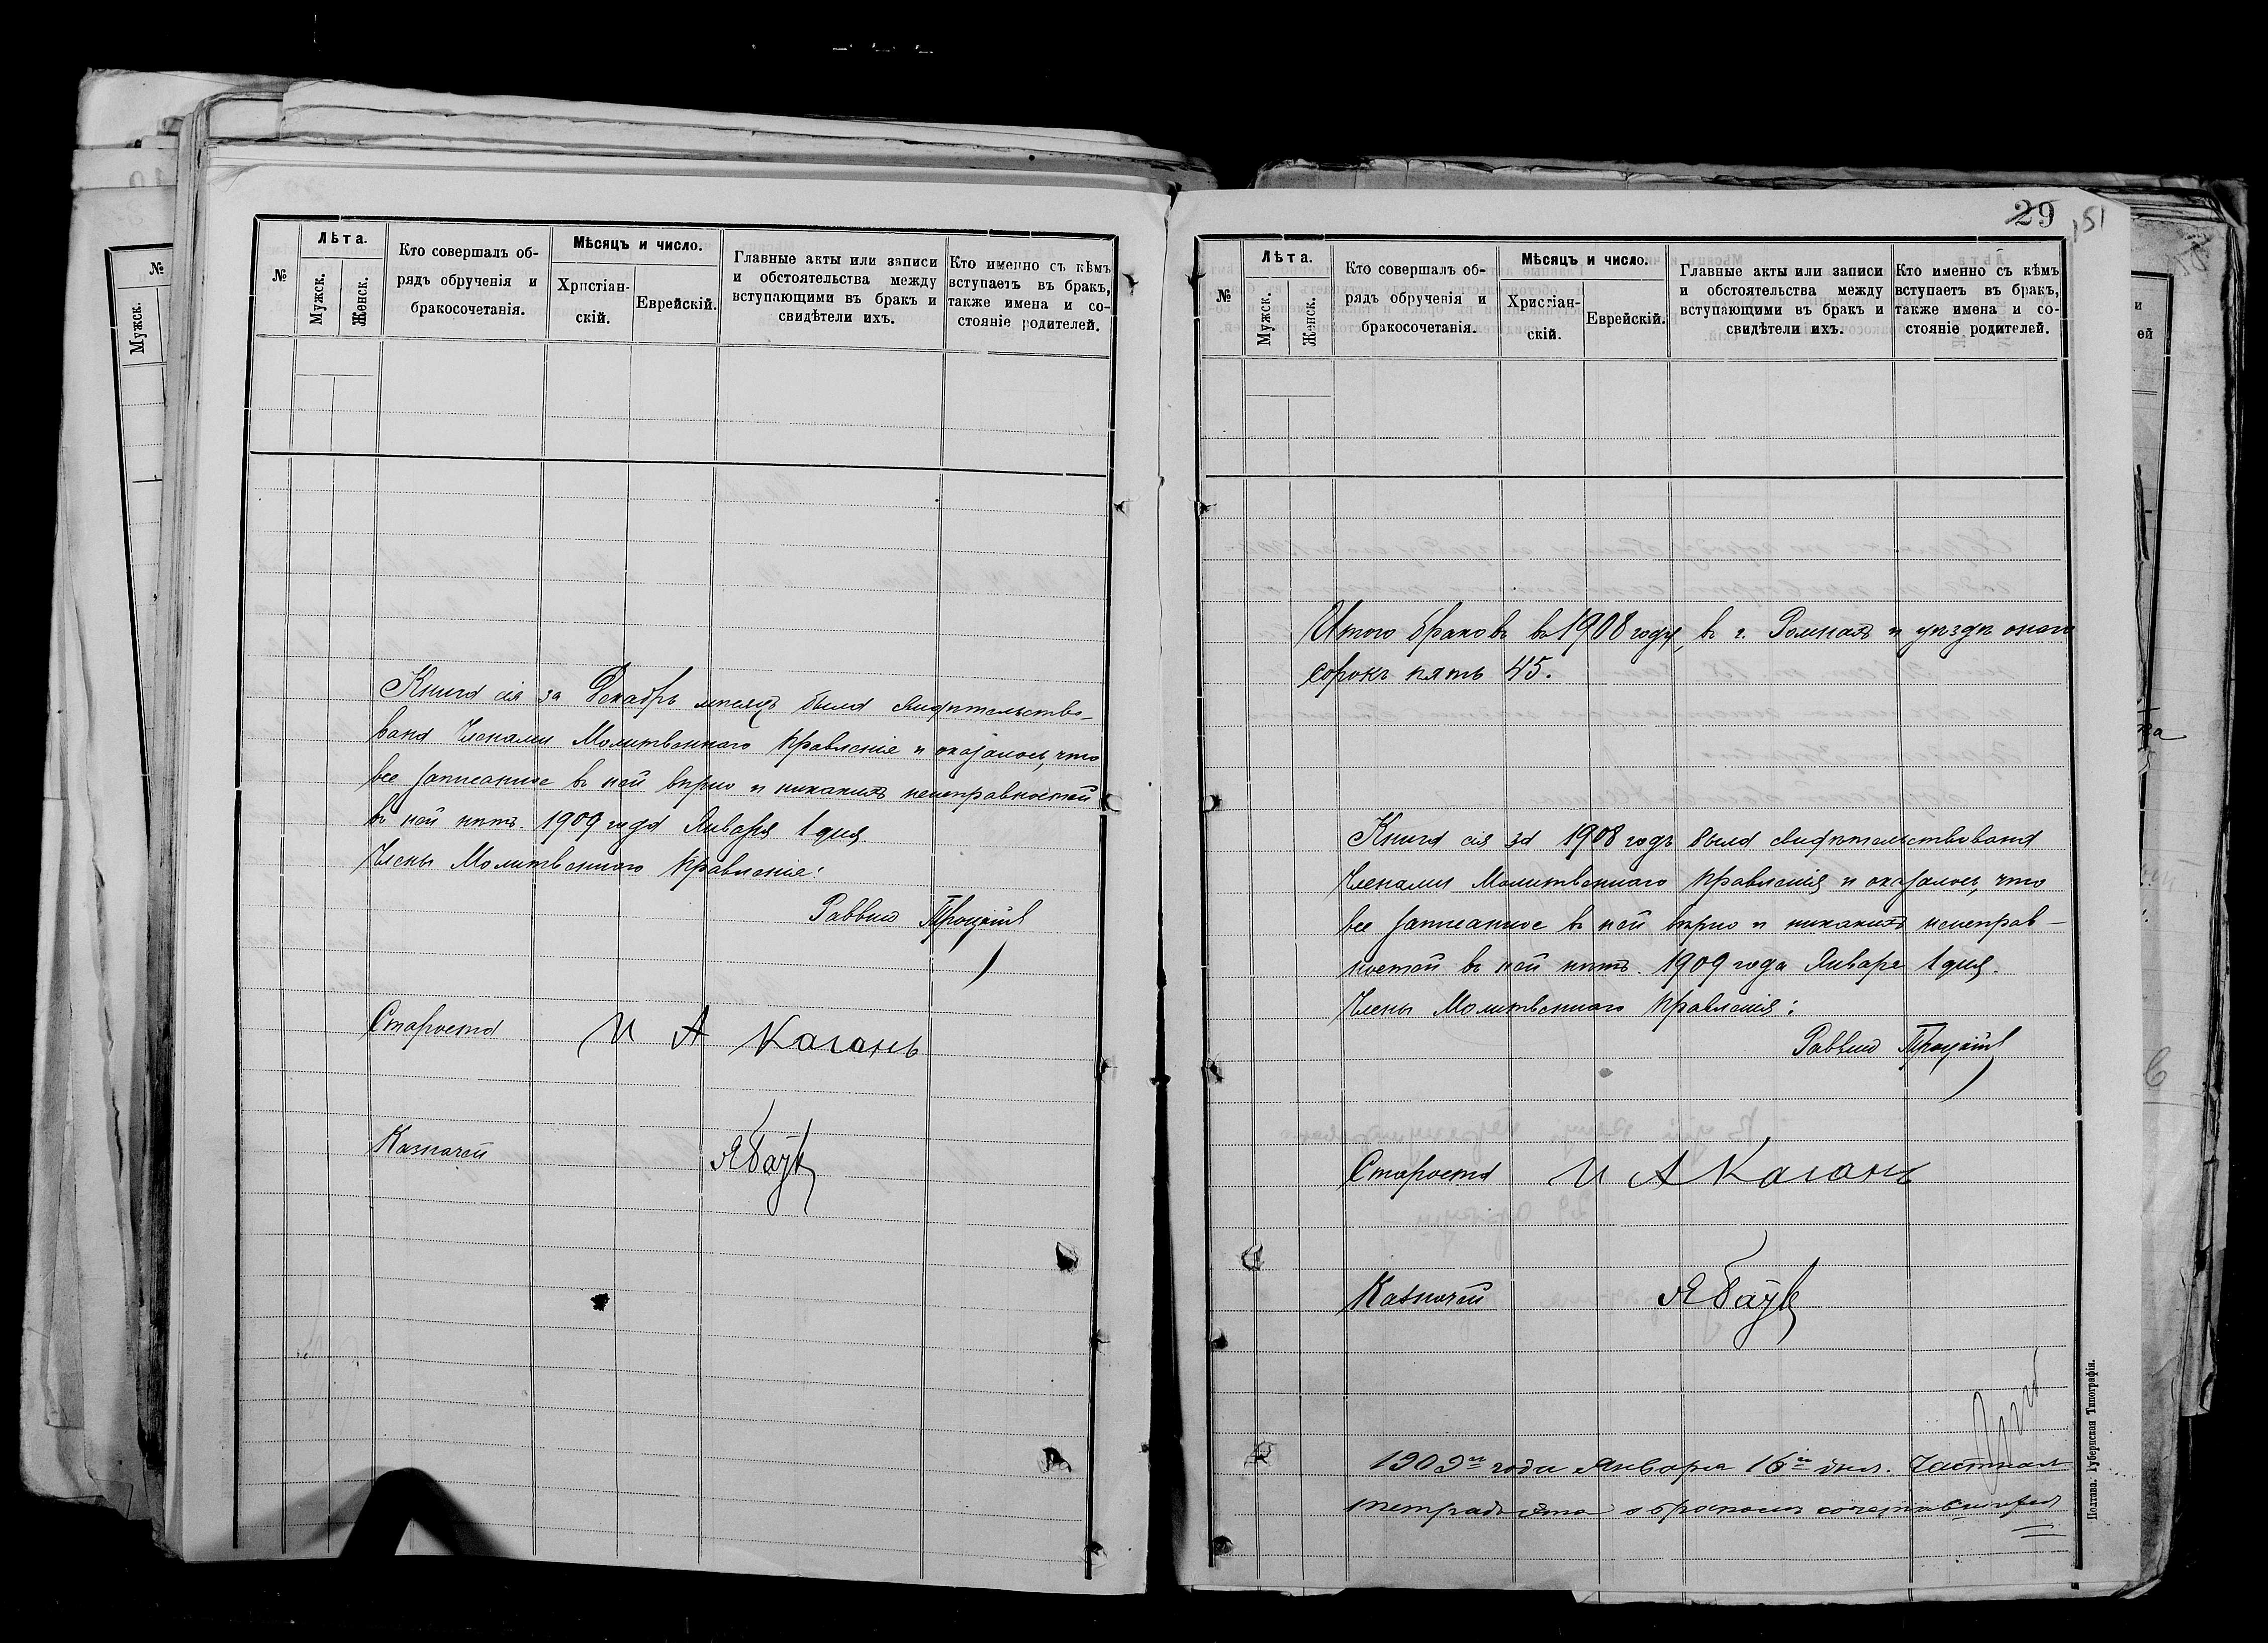 №
Лѣта.
Мужск.
Женск.
Кто совершалъ об-
рядъ обрученія и
бракосочетанія.
Мѣсяцъ и число.
Христіан-
скій.
Еврейскій.
Главные акты или записи
и обстоятельства между
вступающими въ бракъ и
свидѣтели ихъ.
Кто именно съ кѣмъ
вступаетъ въ бракъ,
также имена и со-
стояніе родителей.
Книга сія за Декабрь мѣсяцъ была свидѣтельство-
вана Членами Молитвеннаго Правленія и оказалось, что
все записанное въ ней вѣрно и никакихъ неисправностей
въ ней нѣтъ. 1909 года Января 1 дня
Члены Молитвеннаго Правленія:
Раввинъ
Староста И А Каганъ
Казначей
29
151
№
Лѣта.
Мужск.
Женск.
Кто совершалъ об-
рядъ обрученія и
бракосочетанія.
Мѣсяцъ и число.
Христіан-
скій.
Еврейскій.
Главные акты или записи
и обстоятельства между
вступающими въ бракъ и
свидѣтели ихъ.
Кто именно съ кѣмъ
вступаетъ въ бракъ,
также имена и со-
стояніе родителей.
Итого браковъ въ 1908 году, въ г. Ромнахъ и уѣздѣ онаго
сорокъ пять 45.
Книга сія за 1908 годъ была свидѣтельствована
Членами Молитвеннаго Правленія и оказалось, что
все записанное въ ней вѣрно и никакихъ неисправ-
ностей въ ней нѣтъ. 1909 года Января 1 дня.
Члены Молитвеннаго Правленія:
Раввинъ
Староста И А Каганъ
Казначей
1909го года Января 16го дня. Частная
тетрадь эта о бракомъ сочетавшихся
Полтава. Губернская Типографія.